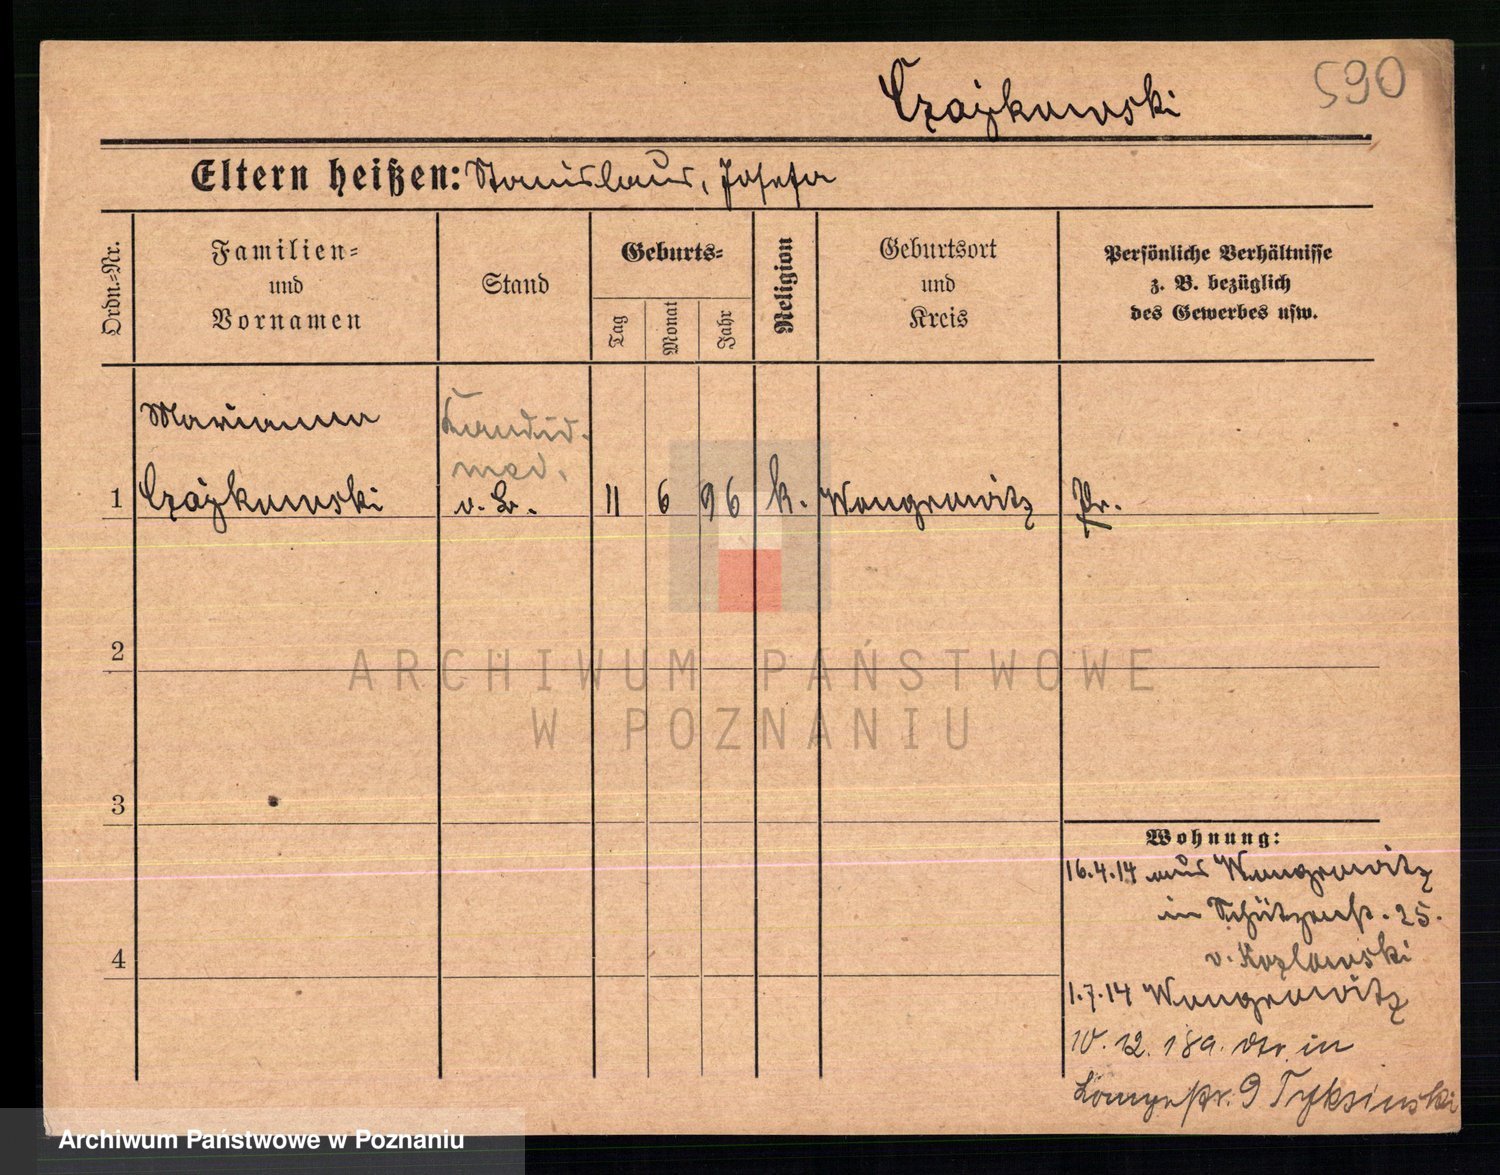 Czajkowski
590
Eltern heißen: Stanislaus, Josefa
Ordn.=Nr.
Familien=
und
Vornamen
Stand
Geburts=
Tag
Monat
Jahr
Religion
Geburtsort
und
Kreis
Persönliche Verhältnisse
z. B. bezüglich
des Gewerbes usw.
Marianna
Kandid.
med.
1 Czajkowski v. B. 11 6 96 k. Wongrowitz Pr.
2
ARCHIWUM PAŃSTWOWE
W POZNANIU
3
Wohnung:
16.4.14 aus Wongrowitz
in Schützenstr. 25.
v. Kozlowski
4
1.7.14 Wongrowitz
10. 12. 189. in
9
Archiwum Państwowe w Poznaniu